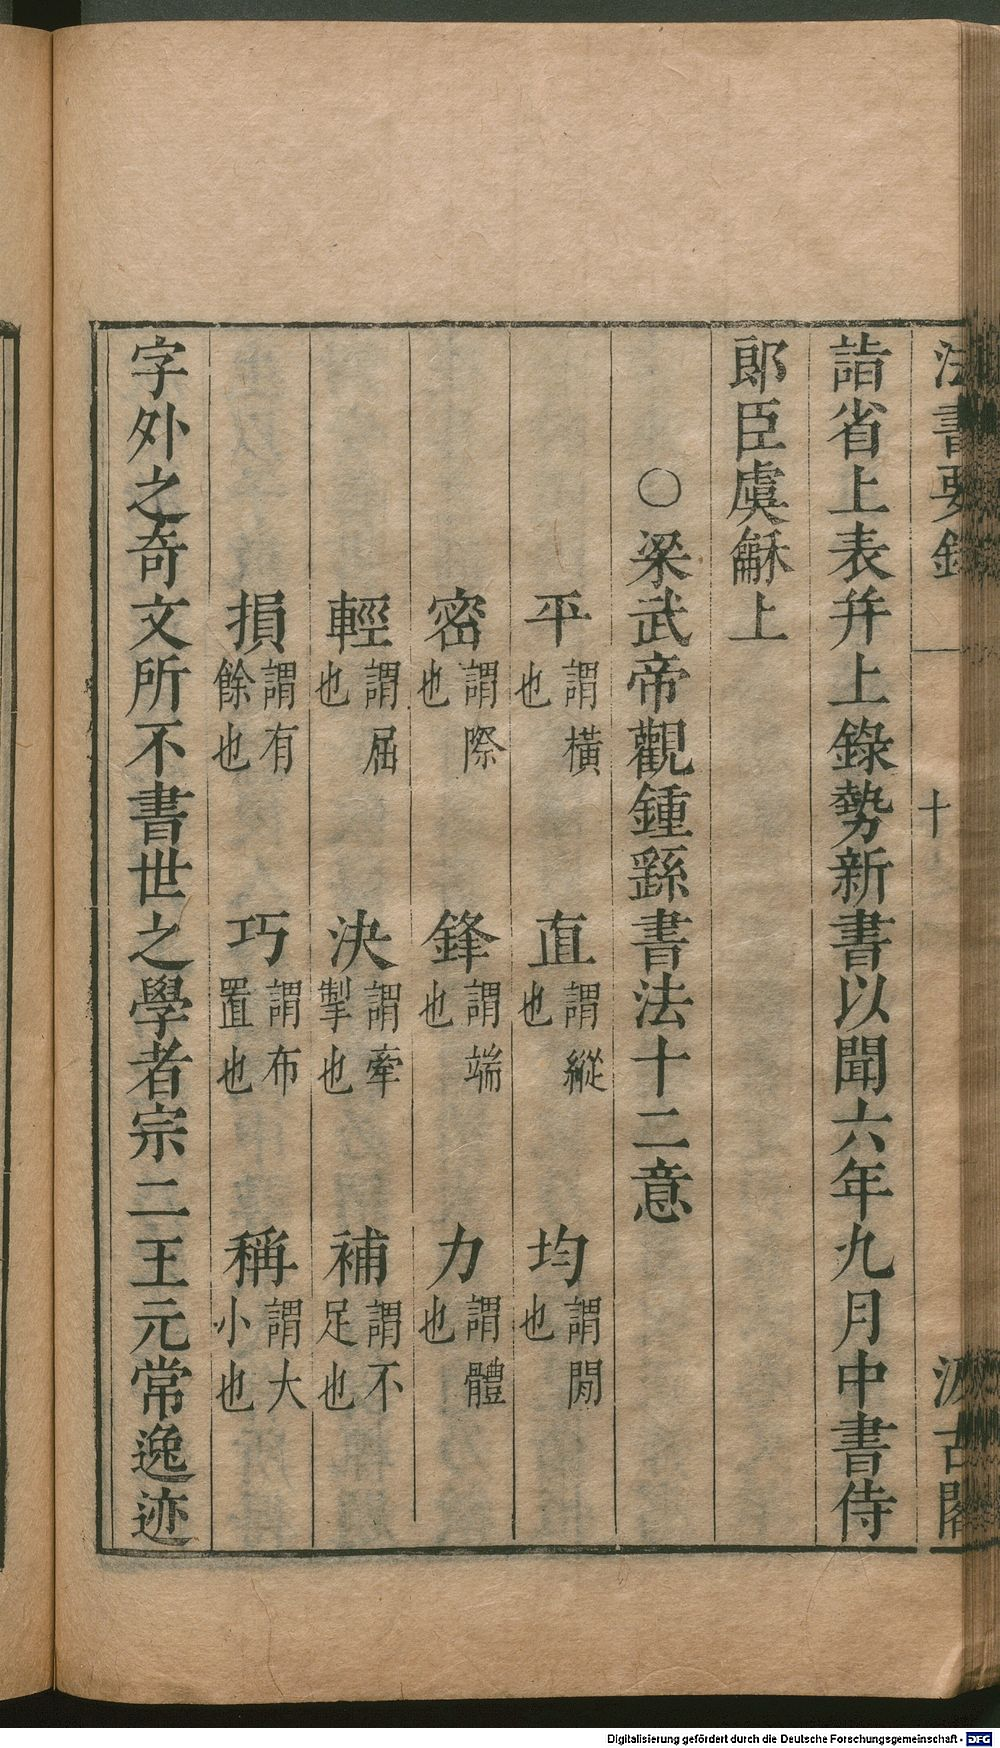 法書要錄 十 汲古閣
詣省上表幷上錄勢新書以聞六年九月中書侍
郎臣虞龢上
○梁武帝觀鍾繇書法十二意
平謂橫也 直謂縱也 均謂閒也
密謂際也 鋒謂端也 力謂體也
輕謂屈也 決謂牽掣也 補謂不足也
損謂有餘也 巧謂布置也 稱謂大小也
字外之奇文所不書世之學者宗二王元常逸迹
Digitalisierung gefördert durch die Deutsche Forschungsgemeinschaft - DFG